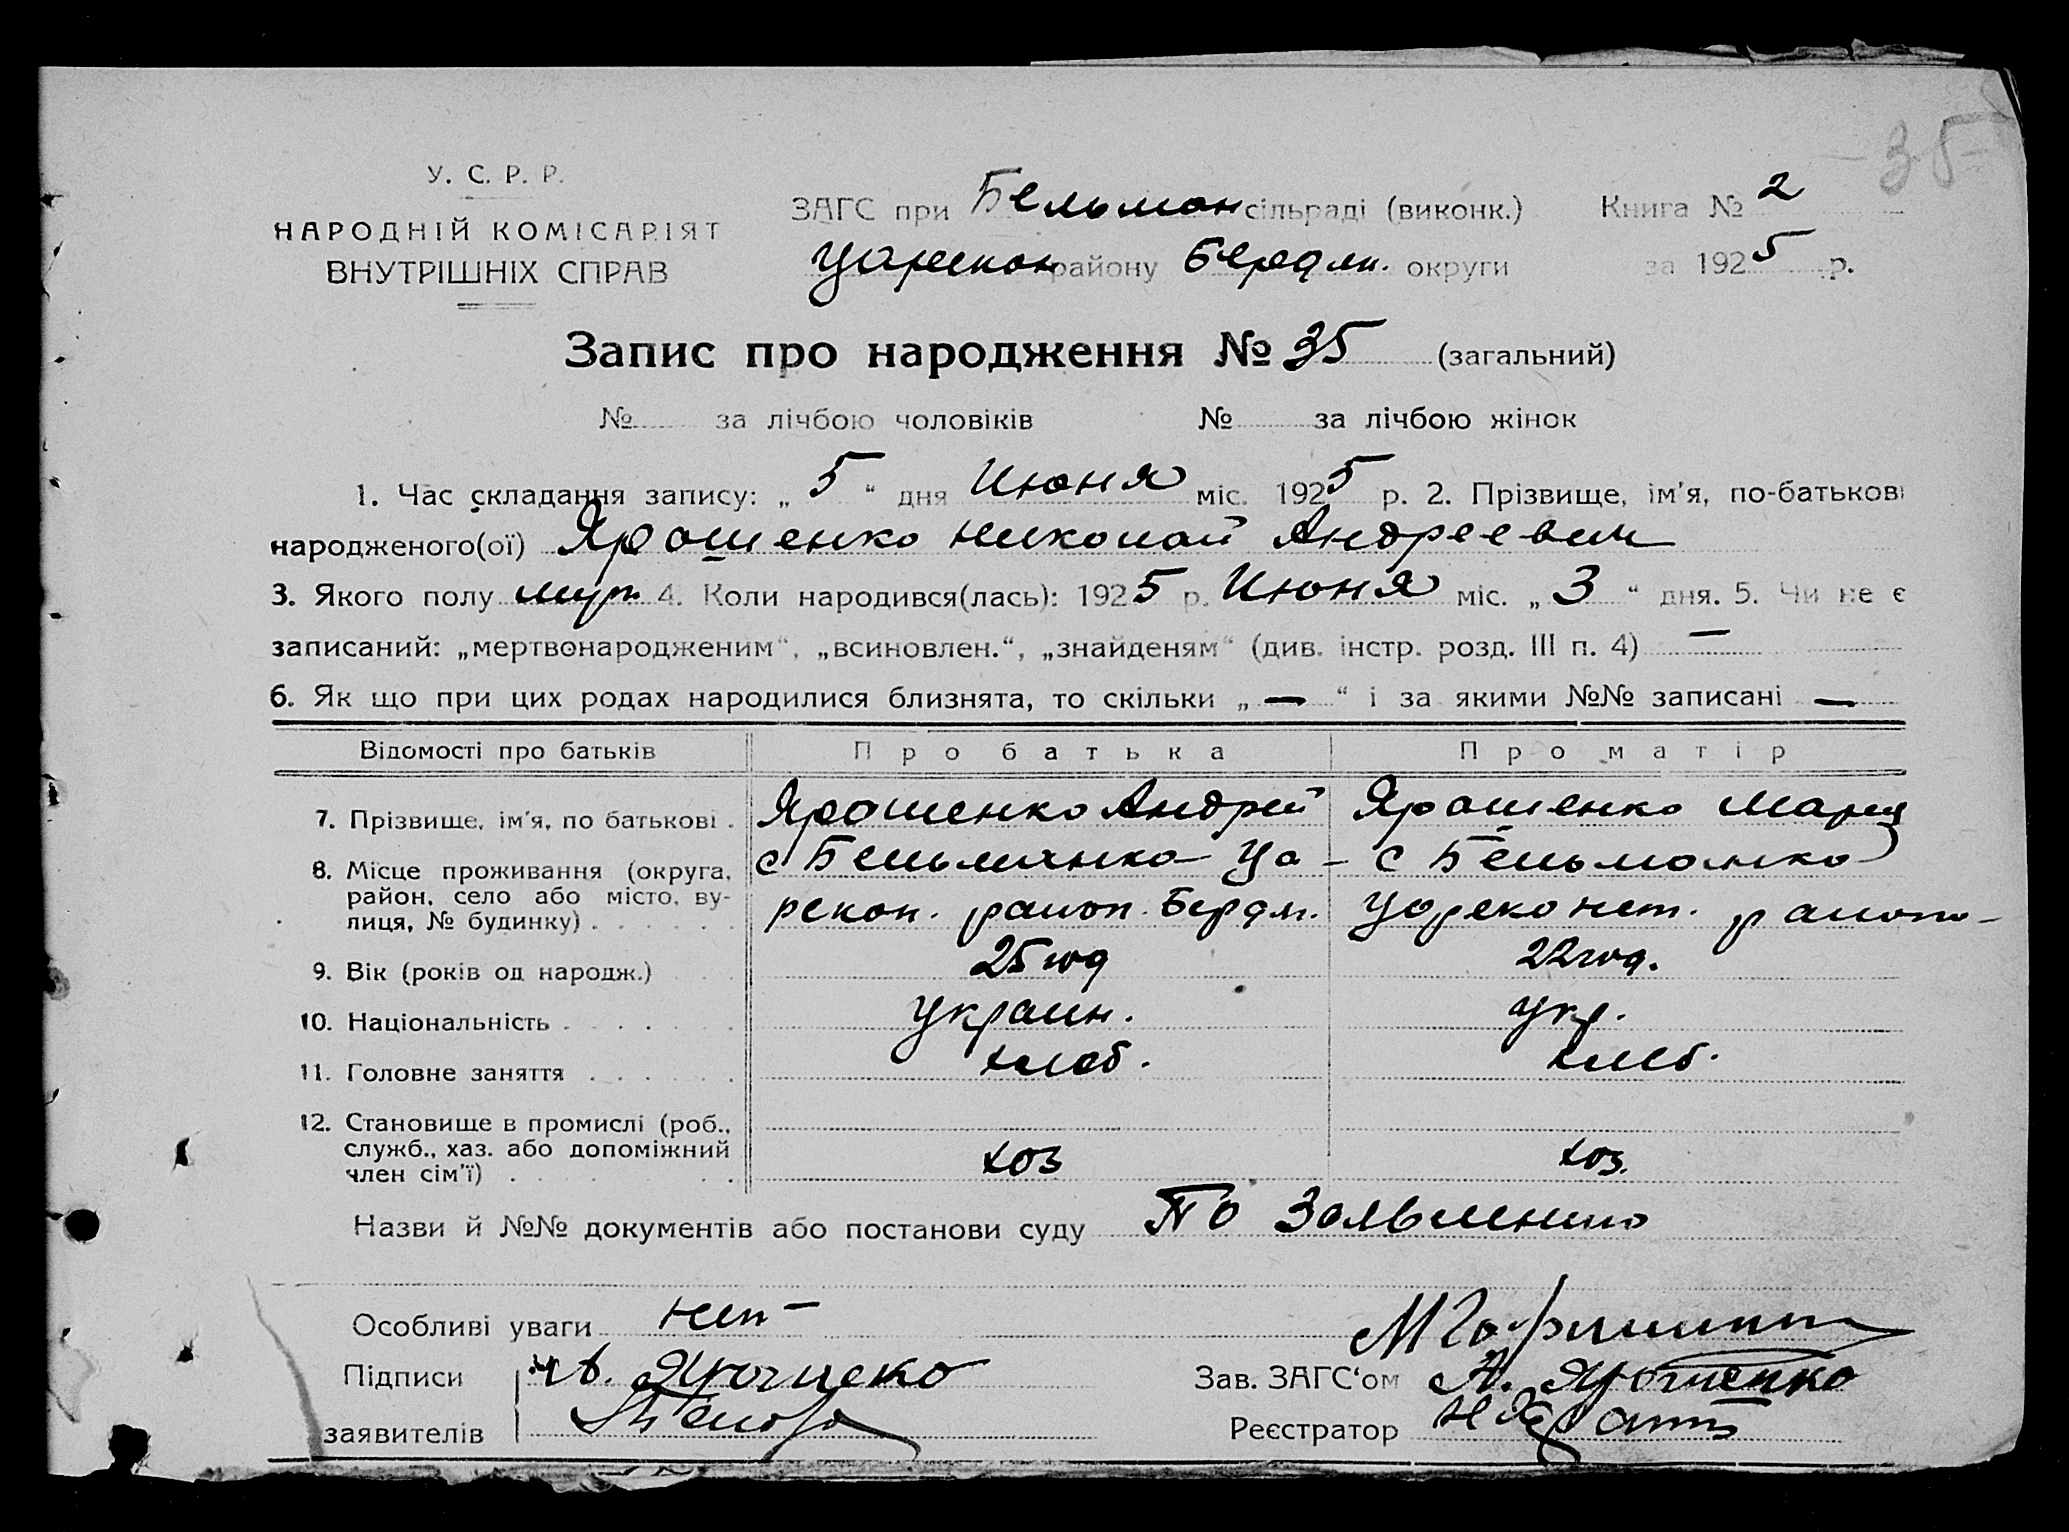 35
У. С. Р. Р.
НАРОДНІЙ КОМІСАРІЯТ
ВНУТРІШНІХ СПРАВ
ЗАГС при Бельман сільраді (виконк.) Книга № 2
Царекон району Бердян. округи за 1925 р.
Запис про народження № 35 (загальний)
№ за лічбою чоловіків № за лічбою жінок
1. Час складання запису: „ 5 “ дня Июня міс. 1925 р. 2. Прізвище, ім'я, по-батькові
народженого(ої) Ярошенко Николай Андреевич
3. Якого полу муж. 4. Коли народився(лась): 1925 р. Июня міс. „ 3 “ дня. 5. Чи не є
записаний: „мертвонародженим“, „всиновлен.“, „знайденям“ (див. інстр. розд. III п. 4) —
6. Як що при цих родах народилися близнята, то скільки „ — “ і за якими №№ записані —
Відомості про батьків Про батька Про матір
7. Прізвище, ім'я, по батькові . Ярошенко Андрей Ярошенко Мария
8. Місце проживання (округа, с Бельманка Ца- с Бельманка
район, село або місто, ву-
лиця, № будинку) . . . . . . рекон. район. Бердян. район
9. Вік (років од народж.) 25 год 22 год.
10. Національність . . . . . . украин. укр.
11. Головне заняття . . . . . хлеб. хлеб.
12. Становище в промислі (роб.,
служб., хаз. або допоміжний
член сім'ї) . . . . . . хоз хоз.
Назви й №№ документів або постанови суду По Заявлению
Особливі уваги нет —
Підписи Зав. ЗАГС'ом А. Ярошенко
заявителів Реєстратор